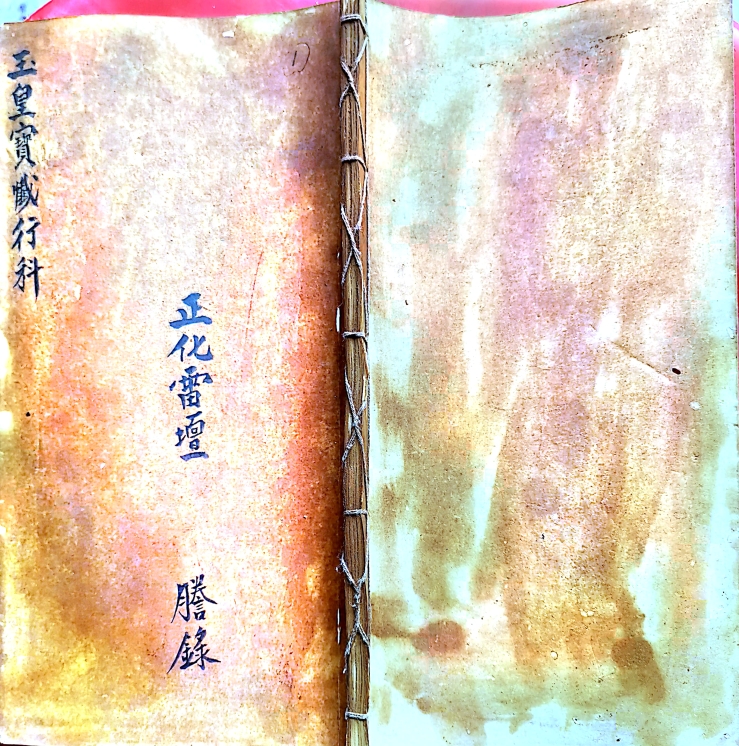 玉皇寶懺行科
正化雷壇
謄錄
1)